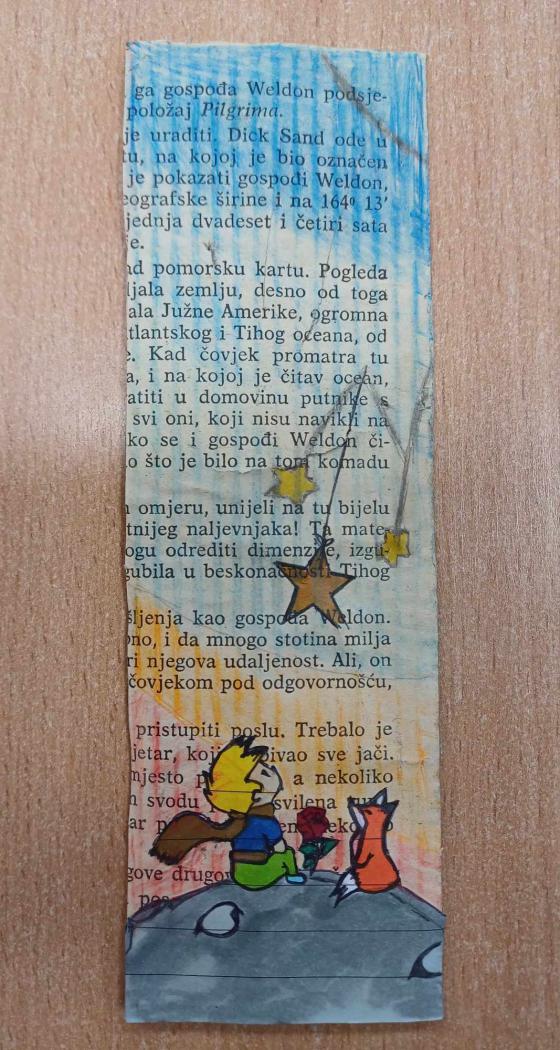 ga gospođa Weldon podsje-
položaj Pilgrima.
je uraditi. Dick Sand ode u
tu, na kojoj je bio označen
je pokazati gospođi Weldon,
eografske širine i na 164º 13′
jednja dvadeset i četiri sata
je.
nd pomorsku kartu. Pogleda
ljala zemlju, desno od toga
ala Južne Amerike, ogromna
tlantskog i Tihog oceana, od
e. Kad čovjek promatra tu
a, i na kojoj je čitav ocean,
atiti u domovinu putnike s
svi oni, koji nisu navikli na
ko se i gospođi Weldon či-
o što je bilo na tom komadu
omjeru, unijeli na tu bijelu
tnijeg naljevnjaka! Ta mate-
ogu odrediti dimenzije, izgu-
gubila u beskonačnosti Tihog
šljenja kao gospođa Weldon.
ono, i da mnogo stotina milja
ri njegova udaljenost. Ali, on
čovjekom pod odgovornošću,
pristupiti poslu. Trebalo je
jetar, koji bivao sve jači.
mjesto a nekoliko
svodu svilena
ar
gove drugov